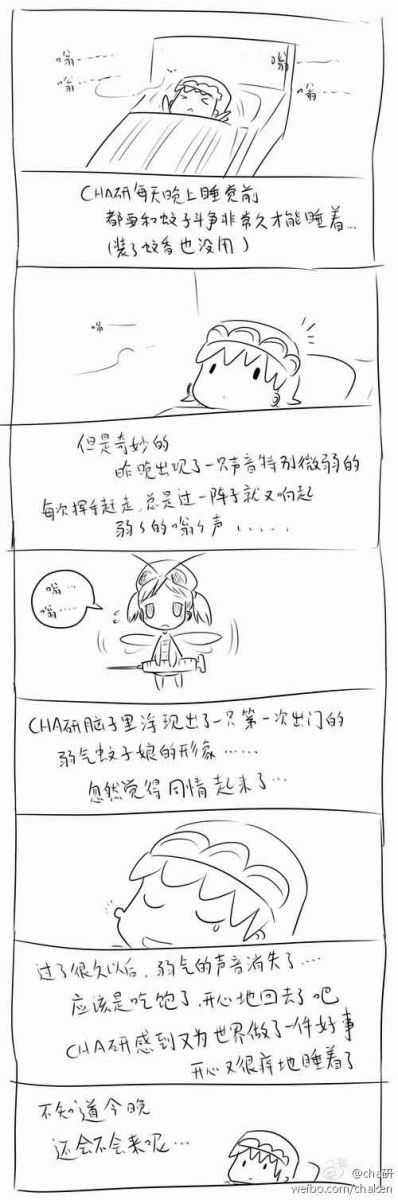 嗡……
嗡……
嗡……
嗡……
CHA研每天晚上睡觉前
都要和蚊子斗争非常久才能睡着…
(装了蚊香也没用)
嗡……
但是奇妙的
昨晚出现了一只声音特别微弱的
每次挥手赶走,总是过一阵子就又响起
弱弱的嗡嗡声......
嗡…
嗡……
CHA研脑子里浮现出了一只第一次出门的
弱气蚊子娘的形象……
忽然觉得同情起来了…
过了很久以后,弱气的声音消失了…
应该是吃饱了,开心地回去了吧
CHA研感到又为世界做了一件好事
开心又很痒地睡着了
不知道今晚
还会不会来呢…
@cha研
weibo.com/chaken